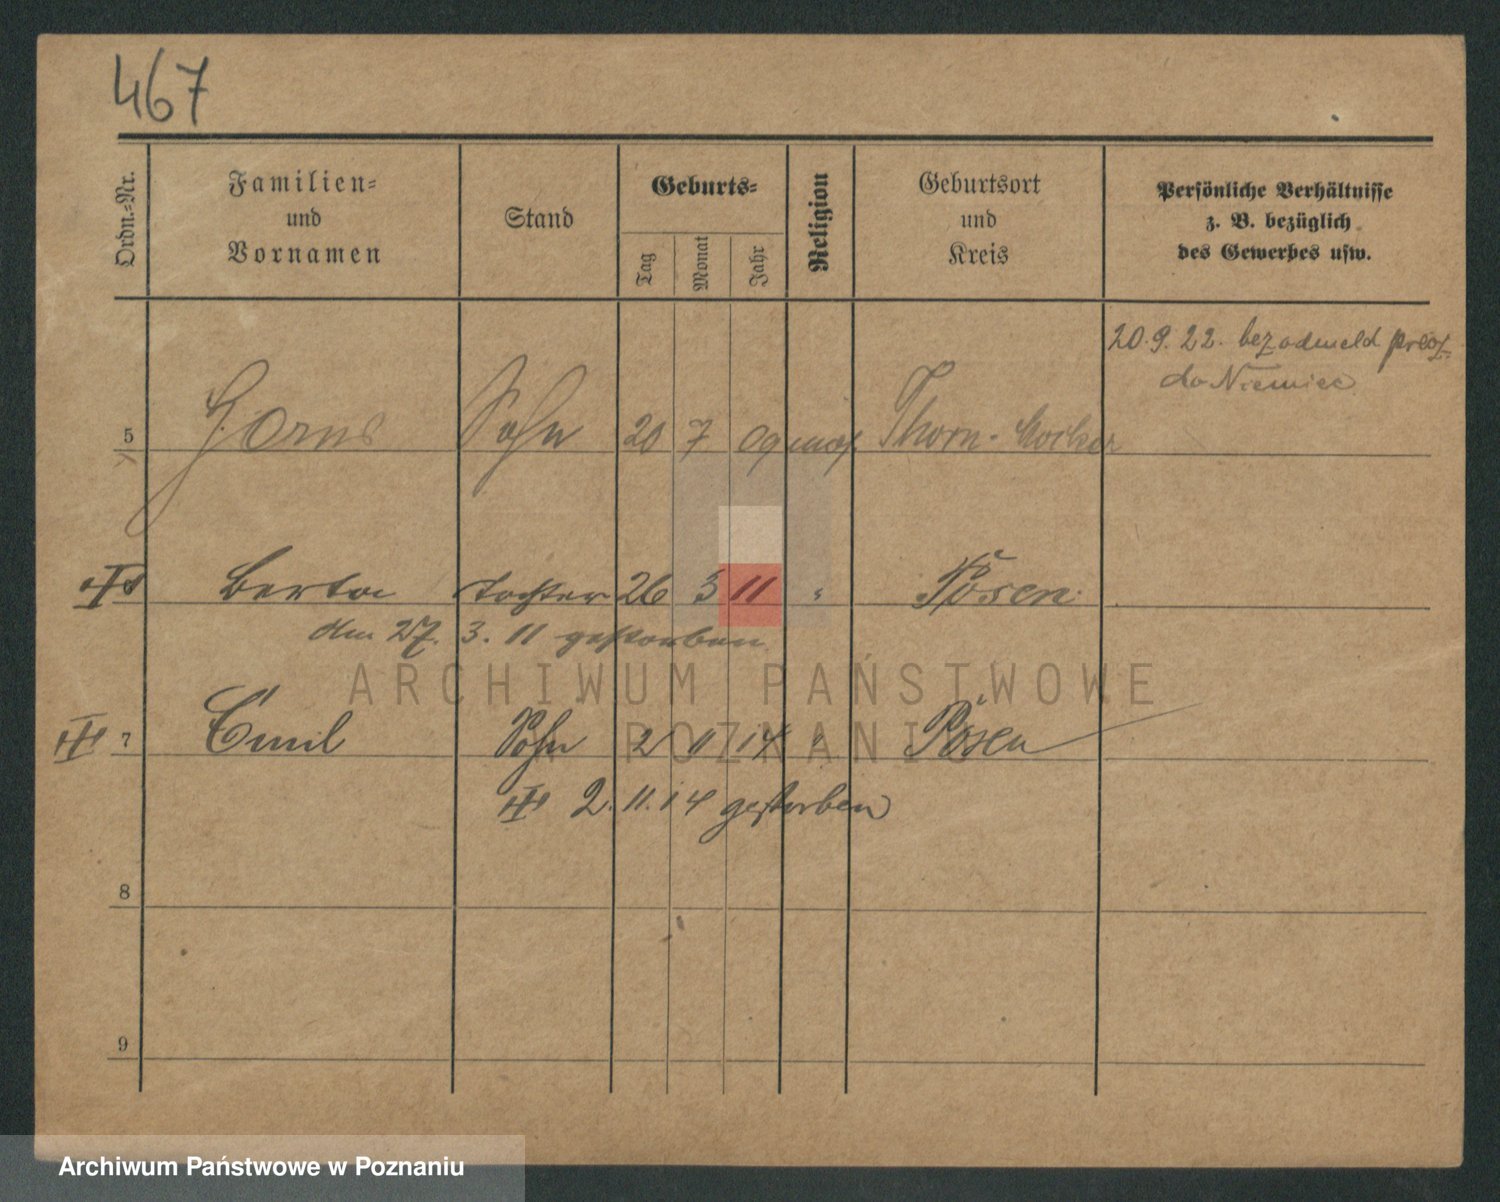 467
Ordn.-Nr.
Familien-
und
Vornamen
Stand
Geburts-
Tag
Monat
Jahr
Religion
Geburtsort
und
Kreis
Persönliche Verhältnisse
z. B. bezüglich
des Gewerbes usw.
20.9.22. bez odmeld
do Niemiec
5 Sohn 20 7 09 mos. Thorn-Mocker
Berta Tochter 26 3 11 " Posen
den 27. 3. 11 gestorben
7 Emil Sohn 2 11 14 " Posen
2. 11. 14 gestorben
8
9
ARCHIWUM PAŃSTWOWE
W POZNANIU
Archiwum Państwowe w Poznaniu